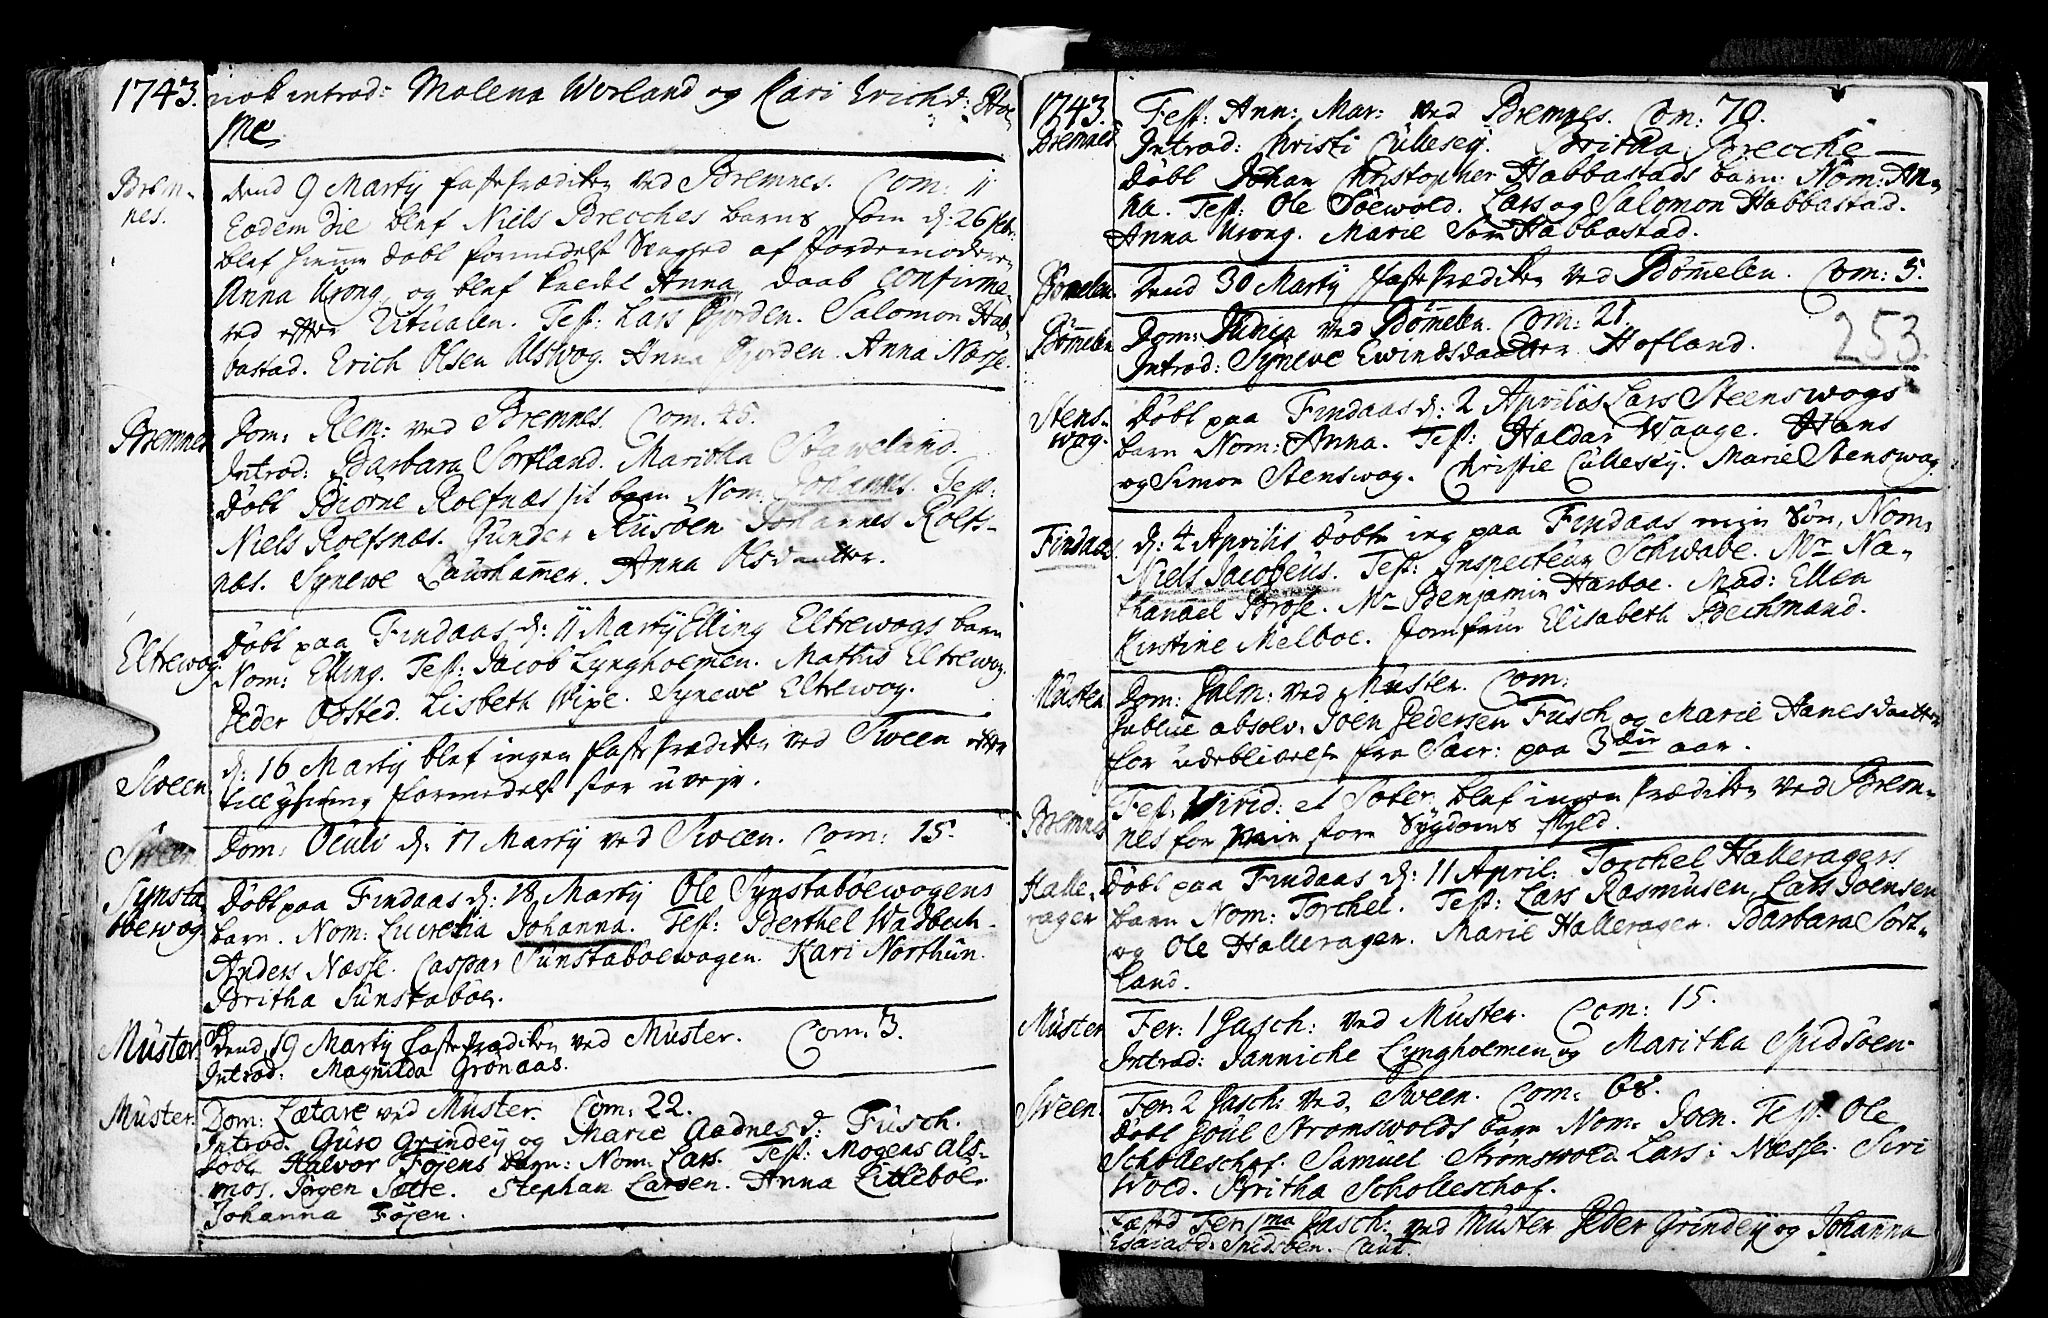 1743. nok introd: Malena Worland og Kari Erichsd: Hol
me.
Brem-
nes.
dend 9 Martÿ faste prædiken ved Bremnes. Com: 11
Eodem die blef Niels Brecches barn som d: 26 febr:
blef hiemme døbt formedelst Svaghed af Jordemoderen
Anna Urong, og blef kaldet Anna, daab confirme-
red efter Ritualen. Test: Lars Gjorden. Salomon Hab-
bastad. Erich Olsen Alswog. Anna Gjorden. Anna Næsse.
Bremnes
Dom: Rem: ved Bremnes. Com: 45.
Introd: Barbara Sortland. Maritha Straweland.
Døbt Biorne Rolfnæs sit barn Nom: Johannes. Test:
Niels Rolfsnæs. Gunder Rusøen Johannes Rolfs-
næs. Synewe Laurhammer. Anna Olsdaatter.
Eltrewog
Døbt paa Findaas d: 11 Martÿ Elling Eltrewogs barn
Nom: Elling. Test: Jacob Lyngholmen. Mathis Eltrewog.
Peder Opsted. Lisbeth Wipe. Synewe Eltrewog.
Sween
d: 16 Martÿ blef ingen faste prædiken ved Sween efter
tillysning formedelst stor uvejr.
Sween
Dom: Oculi d: 17 Martÿ ved Sween. Com: 15.
Synsta
bøewog
Døbt paa Findaas d: 18 Martÿ Ole Synstabøewogens
barn. Nom: Lucretia Johanna. Test: Berthel Wadbech.
Anders Næsse. Caspar Sünstabøewogen. Kari Northün.
Britha Sünstabøe.
Müster.
Dend 19 Martÿ faste prædiken ved Müster. Com: 3.
Introd: Magnilda Grønaas.
Müster.
Dom: Lætare ved Müster. Com: 22.
Introd: Guro Grindeÿ og Marie Aadnesd: Füsch.
Døbt Halvor Føÿens barn: Nom: Lars. Test: Mogens Als-
mos. Jørgen Sætre. Stephan Larsen. Anna Litlebøe.
Johanna Føÿen.
1743.
Bremnes
Fest: Ann: Mar: ved Bremnes. Com: 70.
Introd: Christi Cülleseÿ. Britha Brecche
Døbt Johan Christopher Habbastads barn: Nom: An-
na. Test: Ole Søewold. Lars og Salomon Habbastad.
Anna Urong. Marie Habbastad.
Bømelen.
Dend 30 Martÿ faste prædiken ved Bømmelen. Com: 5.
Bømmelen
Dom: Judica ved Bømmelen. Com: 21.
Introd: Synewe Ewindsdaatter Hofland.
253.
Stens-
wog.
Døbt paa Findaas d: 2 Aprilis Lars Steenswogs
barn Nom: Anna. Test: Haldar Waage. Hans
og Simon Stenswog. Christie Cülleseÿ. Marie Stenswog.
Findaas.
d: 4 Aprilis døbte ieg paa Findaas min Søn, Nom:
Niels Jacobeüs. Test: Inspecteur Schwabe. Mr Na-
thanael Brose. Mr Benjamin Harboe. Mad: Ellen
Kirstine Melboe. Jomfrue Elisabeth Bechmand.
Müster
Dom: Palm: ved Müster. Com:
Publice absolv: Joen Pedersen Füsch og Marie Hanesdaatter
for udeblivelse fra Sacr: paa 3die aar.
Bremnes
Fest: Virid: et Soter. blef ingen prædiken ved Brem-
nes for min store Sygdoms skyld.
Halle-
rager
Døbt paa Findaas d: 11 April: Torchel Halleragers
barn Nom: Torchel. Test: Lars Rasmusen, Lars Joensen
og Ole Halleragen. Marie Halleragen. Barbara Sort-
land.
Müster
Fer: 1 Pasch: ved Müster. Com: 15.
Introd: Jannicke Lyngholmen og Maritha Spidsøen.
Sween.
Fer: 2 Pasch: ved Sween. Com: 68.
Døbt Poul Strømswolds barn Nom: Joen. Test: Ole
Scholleschof. Samüel Strømswold. Lars: Næsse. Siri
Wold. Britha Scholleschof.
Fæsted Fer: 1ma Pasch: ved Müster Peder Grindeÿ og Johanna
Esaiasd: Spidsøen. Caut.